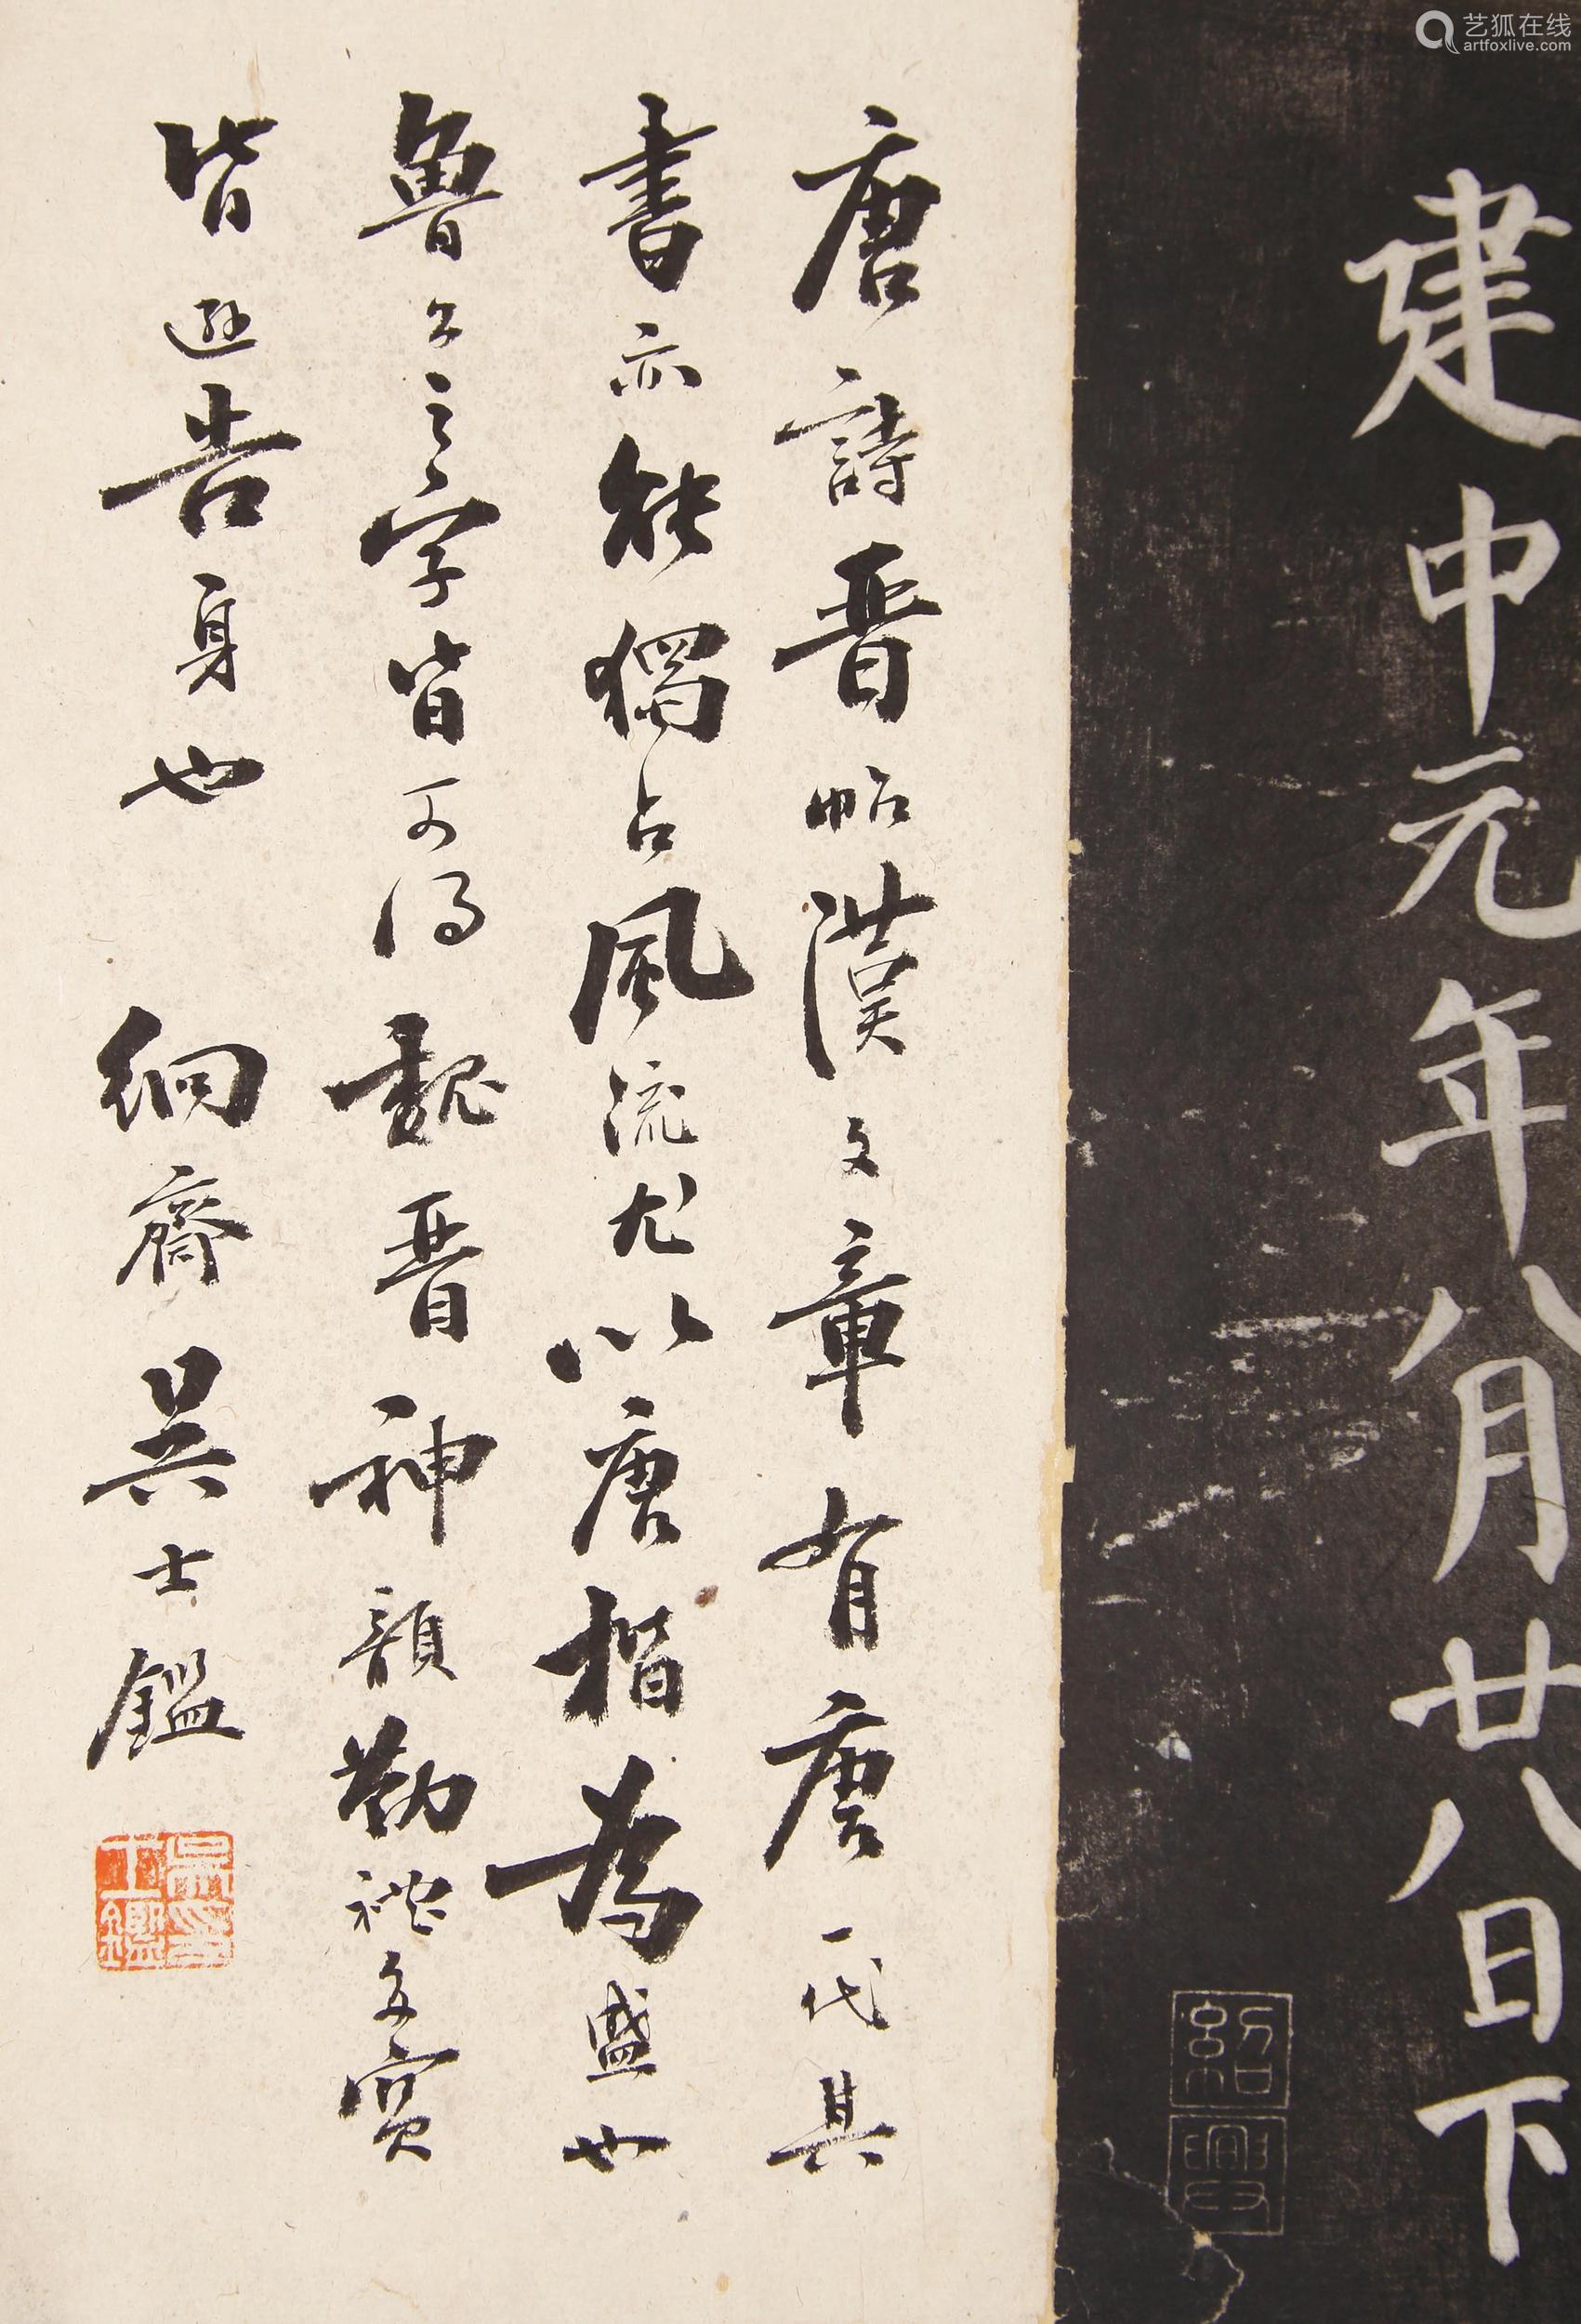 艺狐在线
artfoxlive.com
建中元年八月廿八日下
紹興
唐詩晉帖漢文章有唐一代其
書亦能獨占風流尤以唐楷為盛也
魯公之字皆可得魏晉神韻勤禮多寶
皆遜告身也
絅齋吳士鑑
吳士鑑